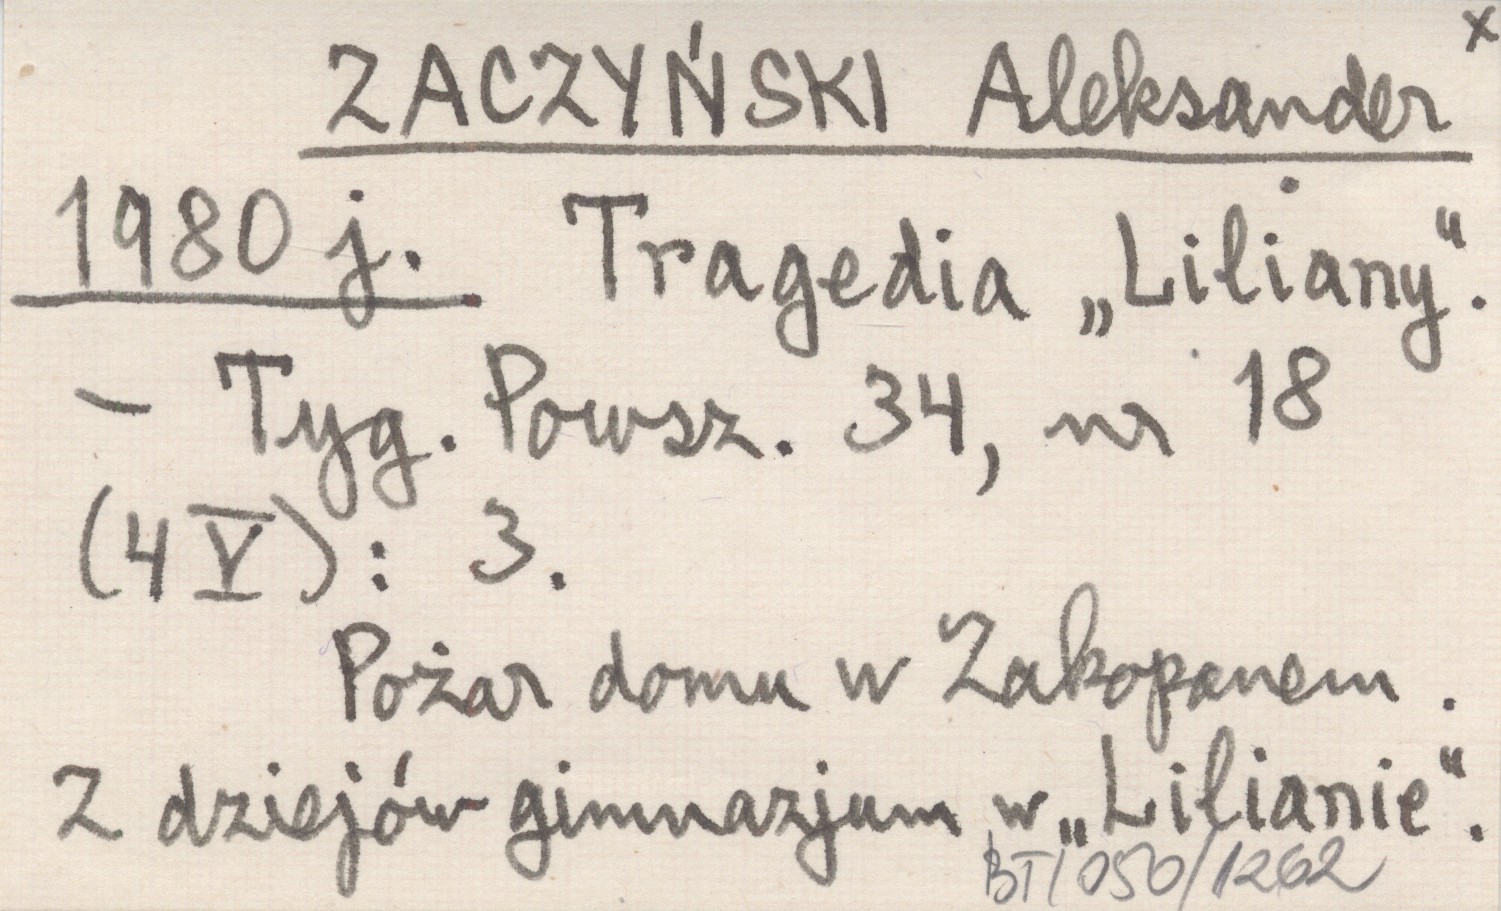 x
ZACZYŃSKI Aleksander
1980 j. Tragedia „Liliany".
- Tyg. Powsz. 34, nr 18
(4 V): 3.
Pożar domu w Zakopanem.
Z dziejów gimnazjum w „Lilianie".
BT/050/1262